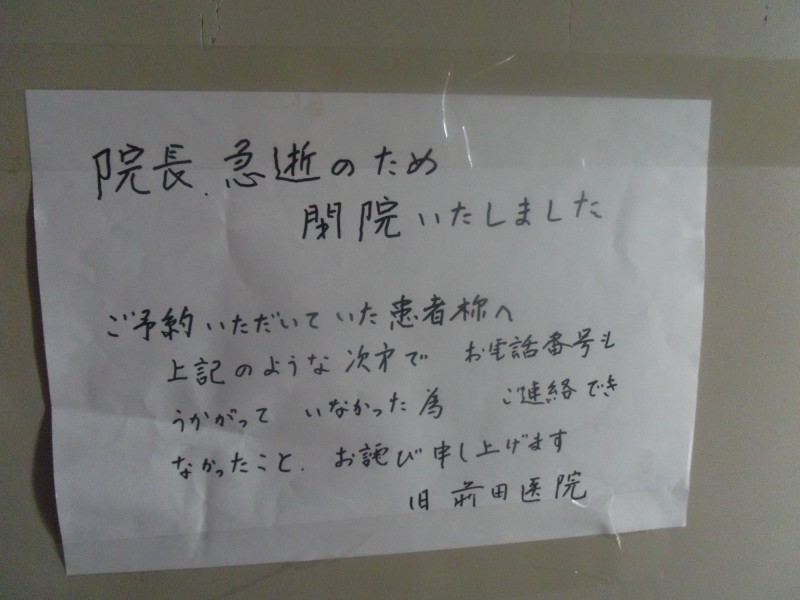 院長 急逝のため
閉院いたしました
ご予約いただいていた患者様へ
上記のような次第で お電話番号も
うかがって いなかった為 ご連絡でき
なかったこと、お詫び申し上げます
旧 前田医院